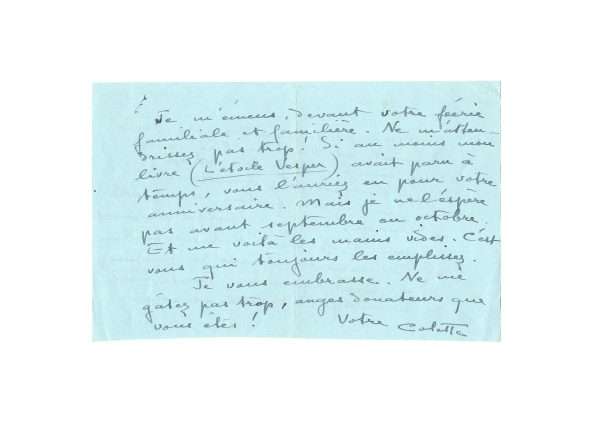 Je m'émeus, devant votre féerie
familiale et familière. Ne m'atten-
drissez pas trop! Si au moins mon
livre (L'étoile Vesper) avait paru à
temps, vous l'auriez eu pour votre
anniversaire. Mais je ne l'espère
pas avant septembre ou octobre.
Et me voilà les mains vides. C'est
vous qui toujours les emplissez.
Je vous embrasse. Ne me
gâtez pas trop, anges donateurs que
vous êtes! Votre Colette